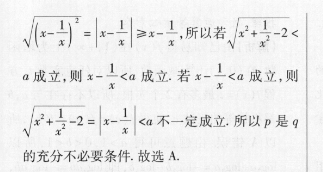 √(x-1/x)² = |x-1/x| ≥ x-1/x,所以若√(x²+1/x²-2) <
a 成立,则 x-1/x<a 成立. 若 x-1/x<a 成立,则
√(x²+1/x²-2) = |x-1/x| <a 不一定成立. 所以 p 是 q
的充分不必要条件. 故选 A.